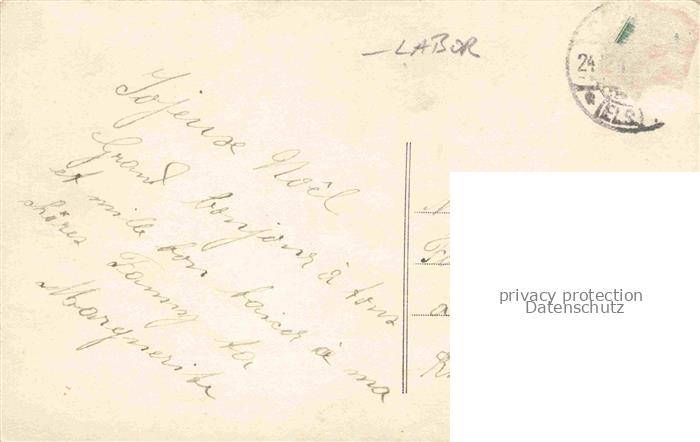 - LABOR
24
(ELS)
Jojeuse Noël
Grand bonjour à tous
et mille bon baiser à ma
chères Fanny ta
Marguerite
privacy protection
Datenschutz